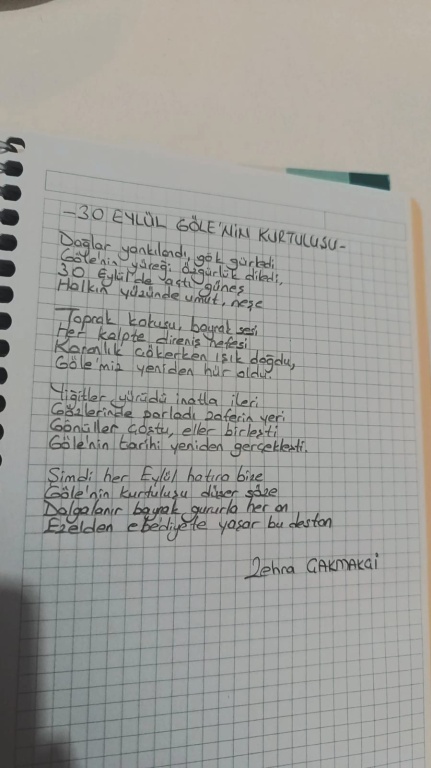 -30 EYLÜL GÖLE'NİN KURTULUSU-
Dağlar yankılandı, gök gürledi
Göle'nin yüreği özgürlük diledi,
30 Eylül'de yastı güneş
Halkın yüzünde umut, neşe
Toprak kokusu, bayrak sesi,
Her kalpte direniş nefesi
Karanlık çökerken ışık doğdu,
Göle'miz yeniden hür oldu.
Yiğitler yürüdü inatla ileri
Gözlerinde parladı zaferin yeri
Gönüller coştu, eller birleşti
Göle'nin tarihi yeniden gerçekleşti.
Simdi her Eylül hatıra bize
Göle'nin kurtuluşu düşer söze
Dalgalanır bayrak gururla her an
Ezelden ebediyete yaşar bu destan
Zehra ÇAKMAKÇI